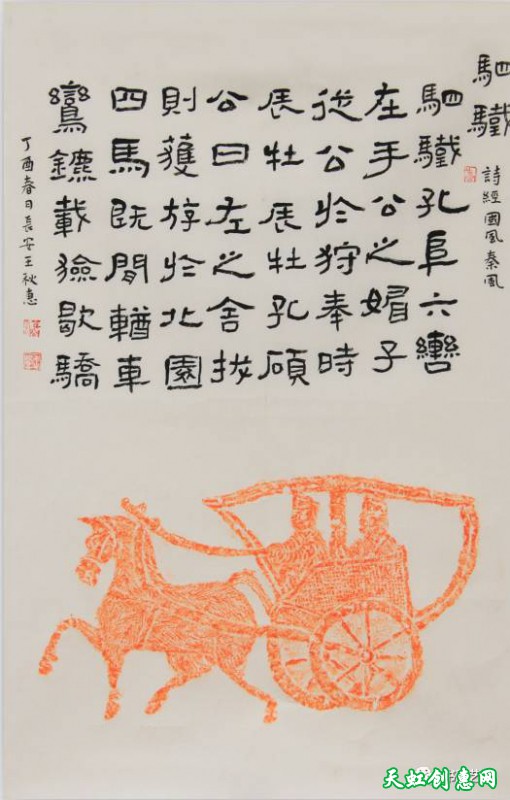 駟驖
詩經國風秦風
駟驖孔阜六轡
在手公之媚子
從公於狩奉時
辰牡辰牡孔碩
公曰左之舍拔
則獲斿於北園
四馬既閒輶車
鸞鑣載獫歇驕
丁酉春日長安王秋惠
天虹创惠网